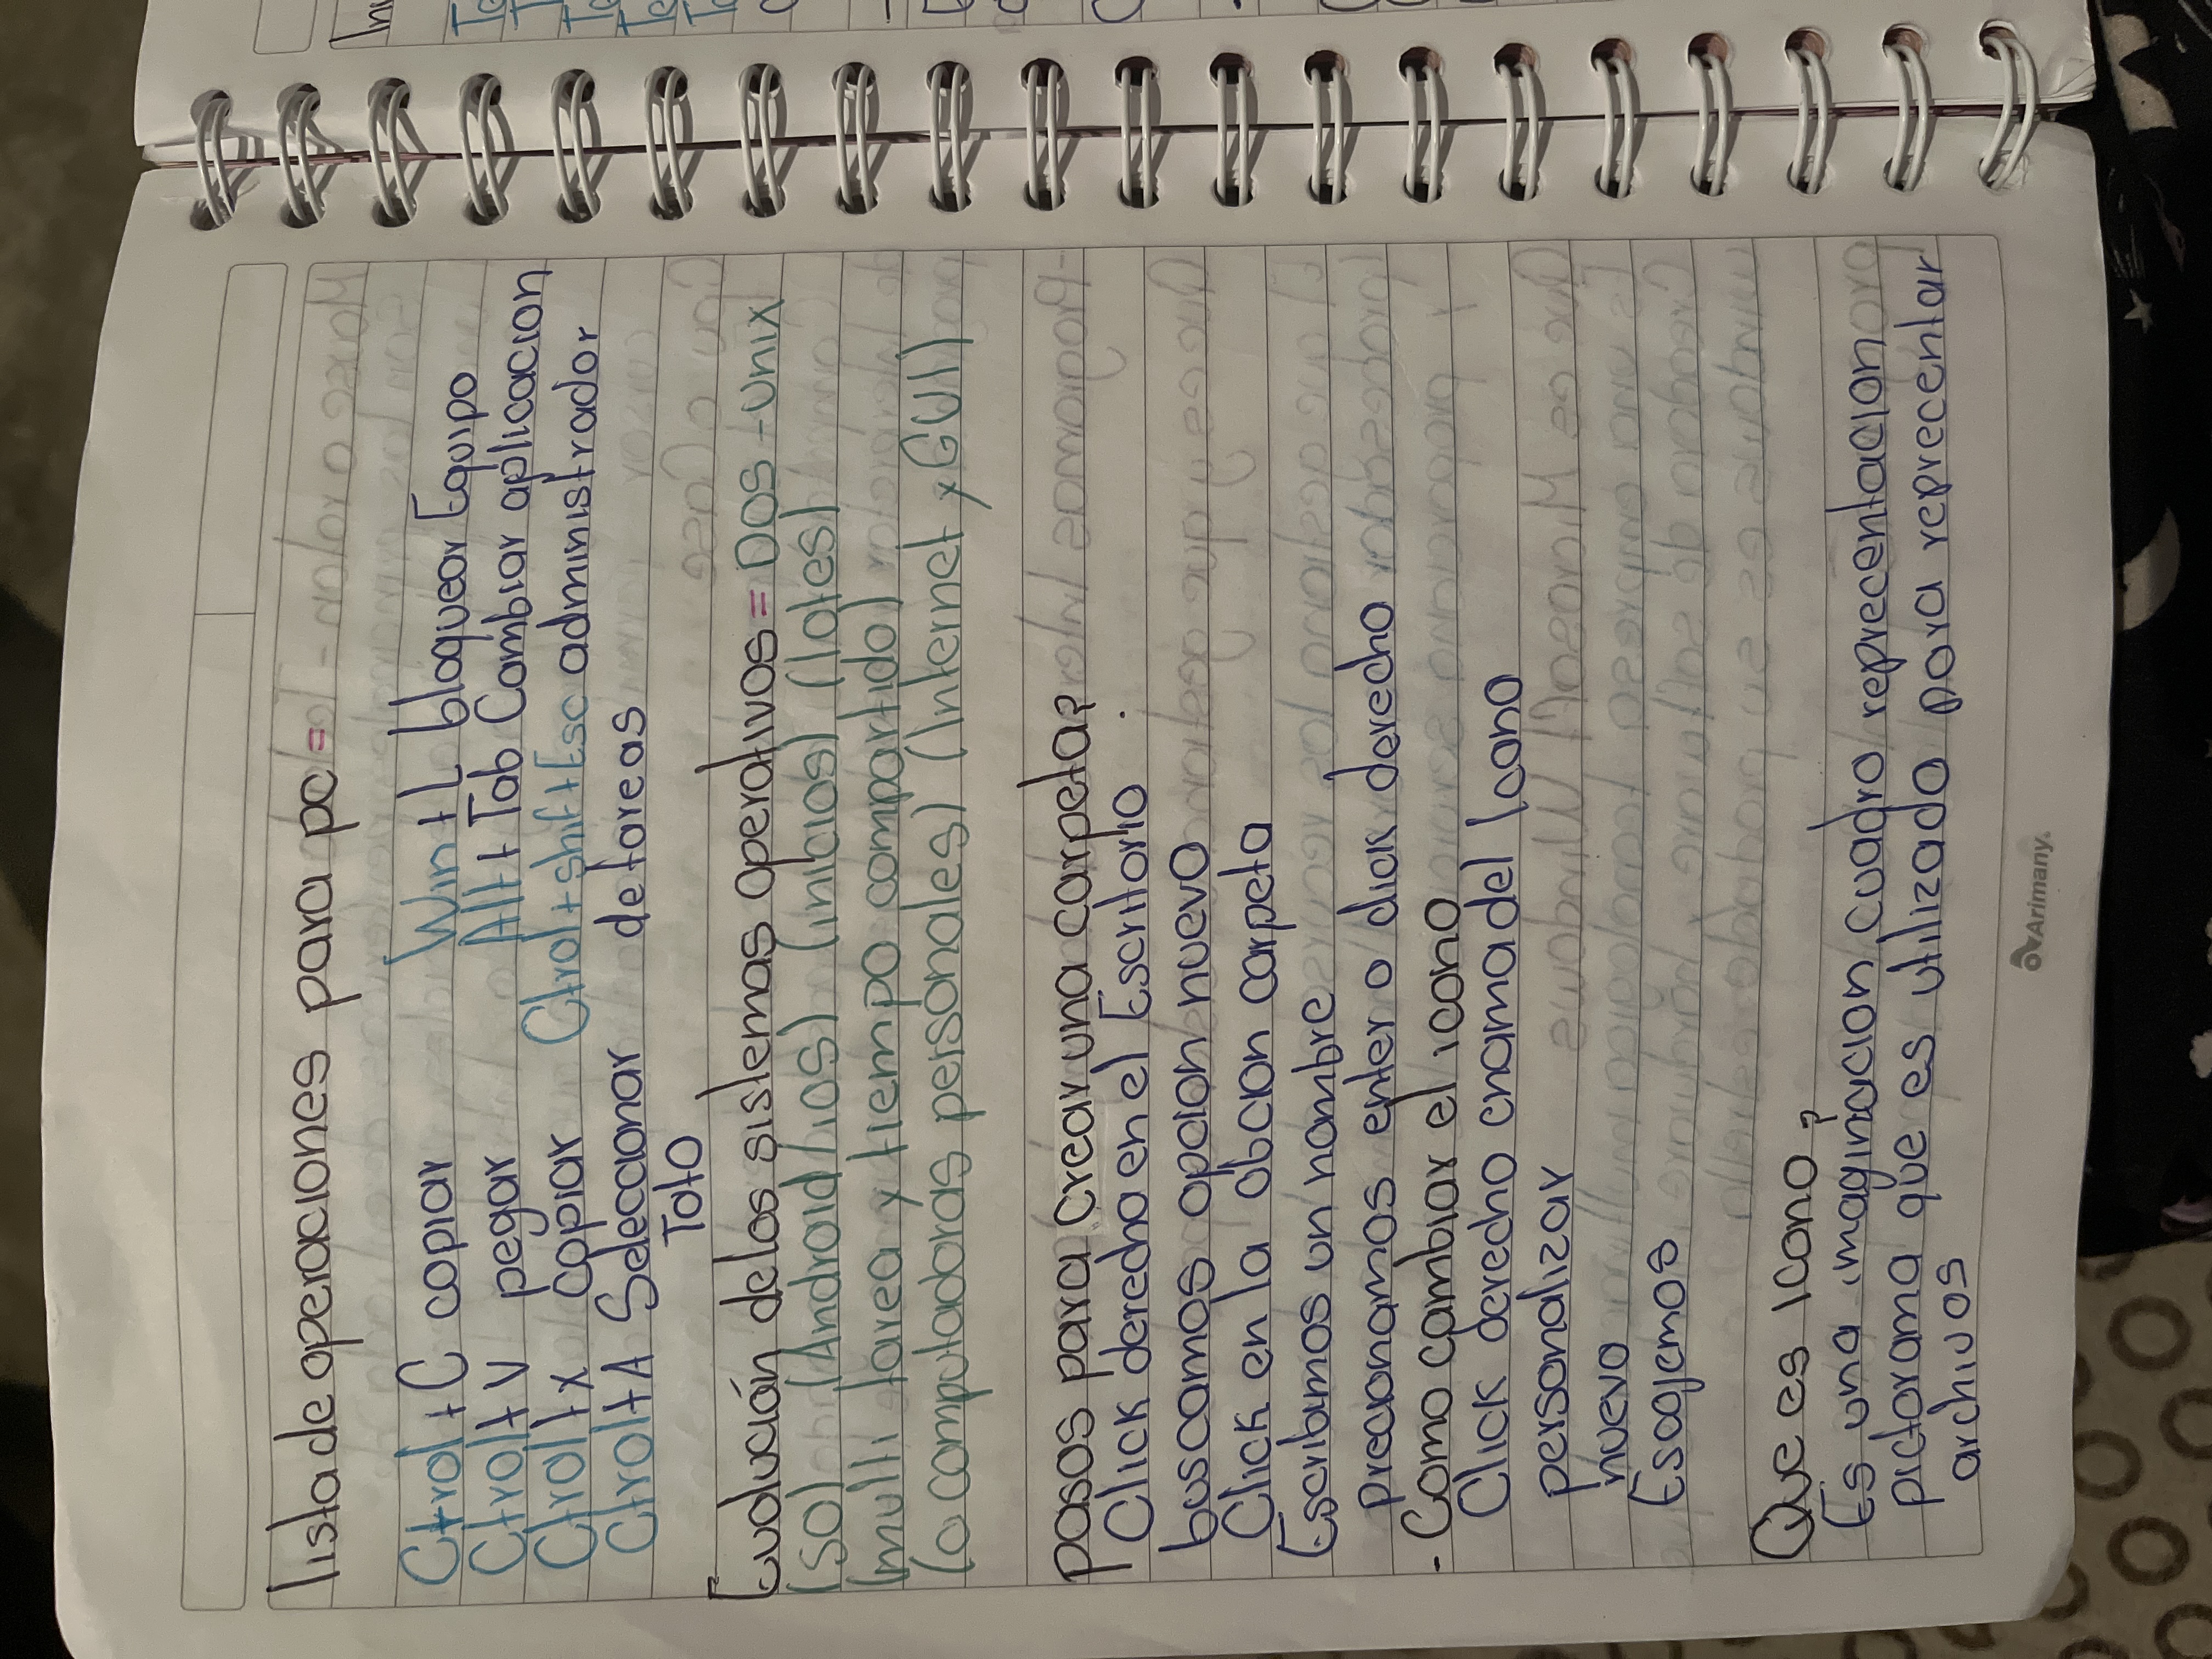 lista de operaciones para pc =
Ctrol + C copiar Win + L bloquear Equipo
Ctrol + V pegar Alt + Tab Cambiar aplicacion
Ctrol + x copiar Ctrol + shift + Esc administrador
Ctrol + A Seleccionar de tareas
Toto
Evolución de los sistemas operativos = DOS - Unix
(SO) (Android / ios) (inicios) (lotes)
(multi tarea y tiempo compartido)
(o computadoras personales) (Internet y GUI)
pasos para Crear una carpeta?
Click derecho en el Escritorio
buscamos opcion nuevo
Click en la obcion carpeta
Escribimos un nombre
precionamos enter o click derecho
- Como cambiar el icono
Click derecho encima del Icono
personalizar
nuevo
Escojemos
Que es Icono?
Es una imaginacion cuadro reprecentacion o
pictorama que es utilizado para reprecentar
archivos
Arimany